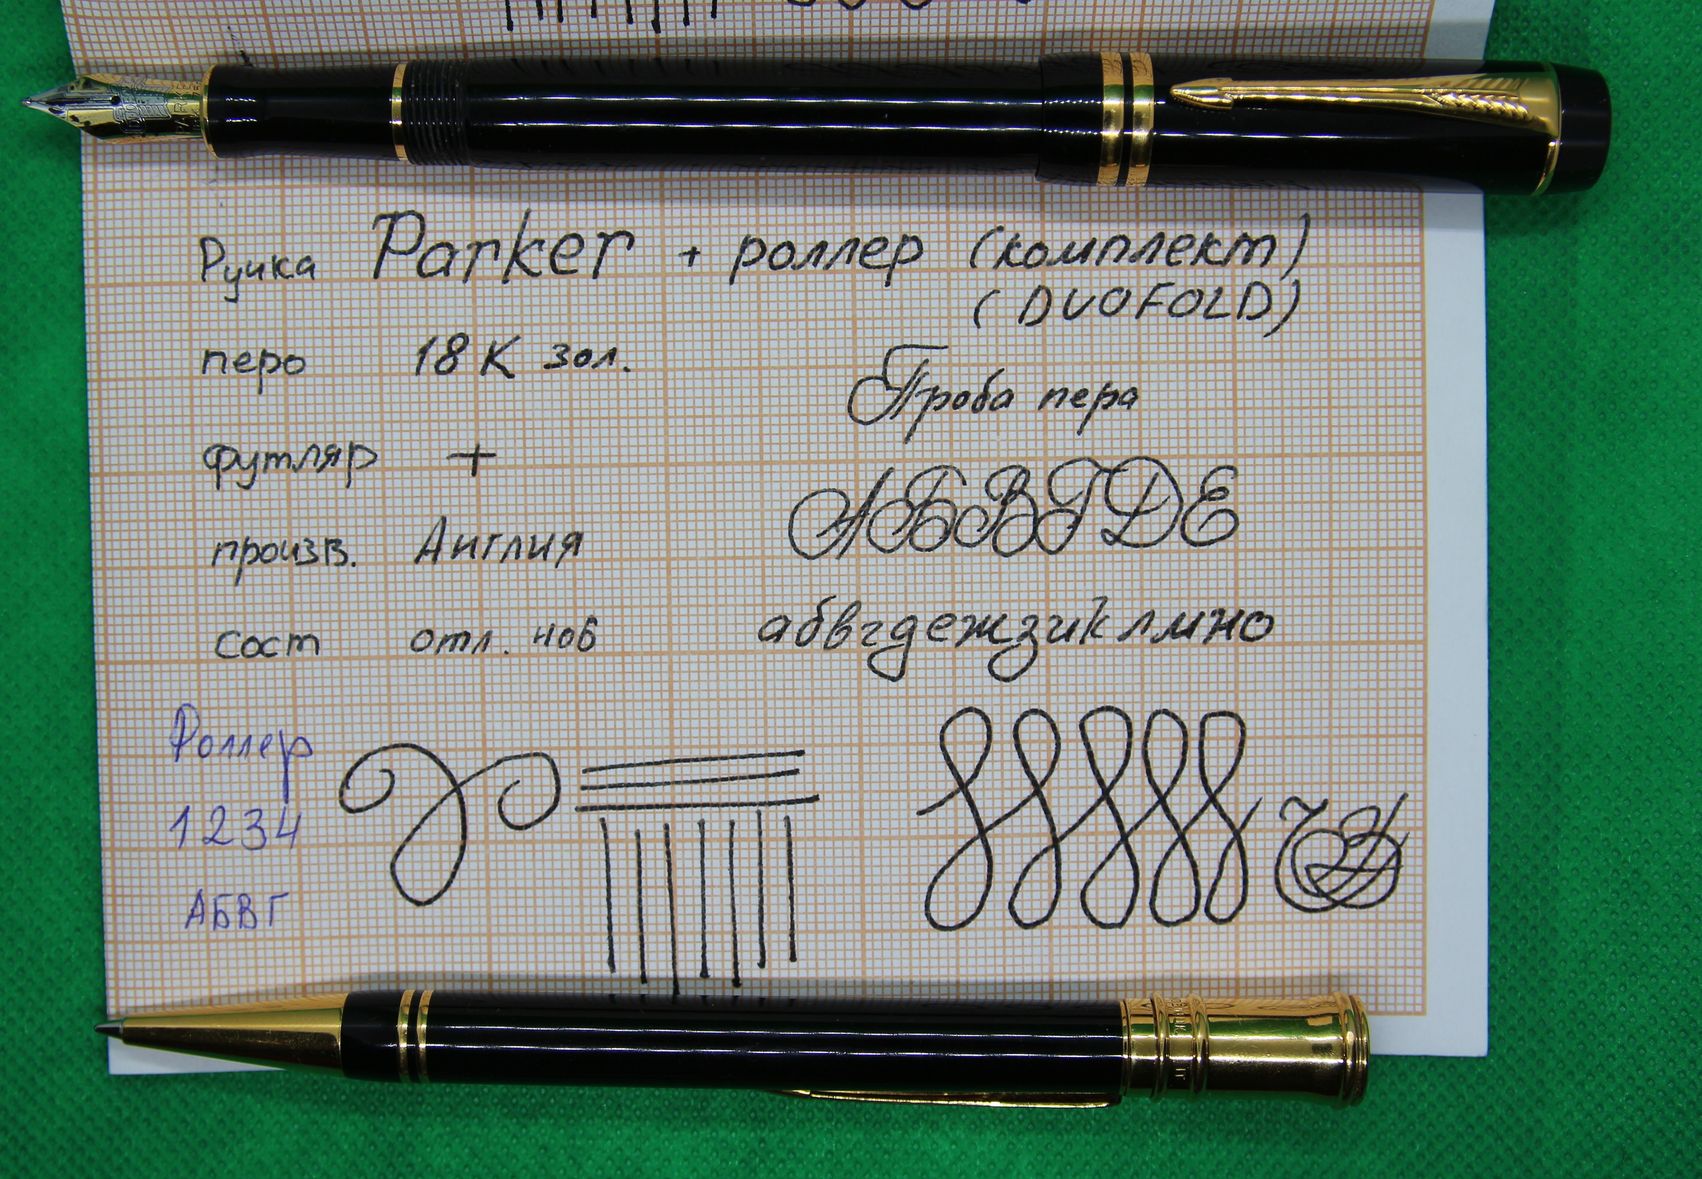 Ручка Parker + роллер (комплект)
(DUOFOLD)
перо 18 К зол.
Проба пера
футляр +
АБВГДЕ
произв. Англия
абвгдежзиклмно
сост отл. нов
Роллер
1234
АБВГ